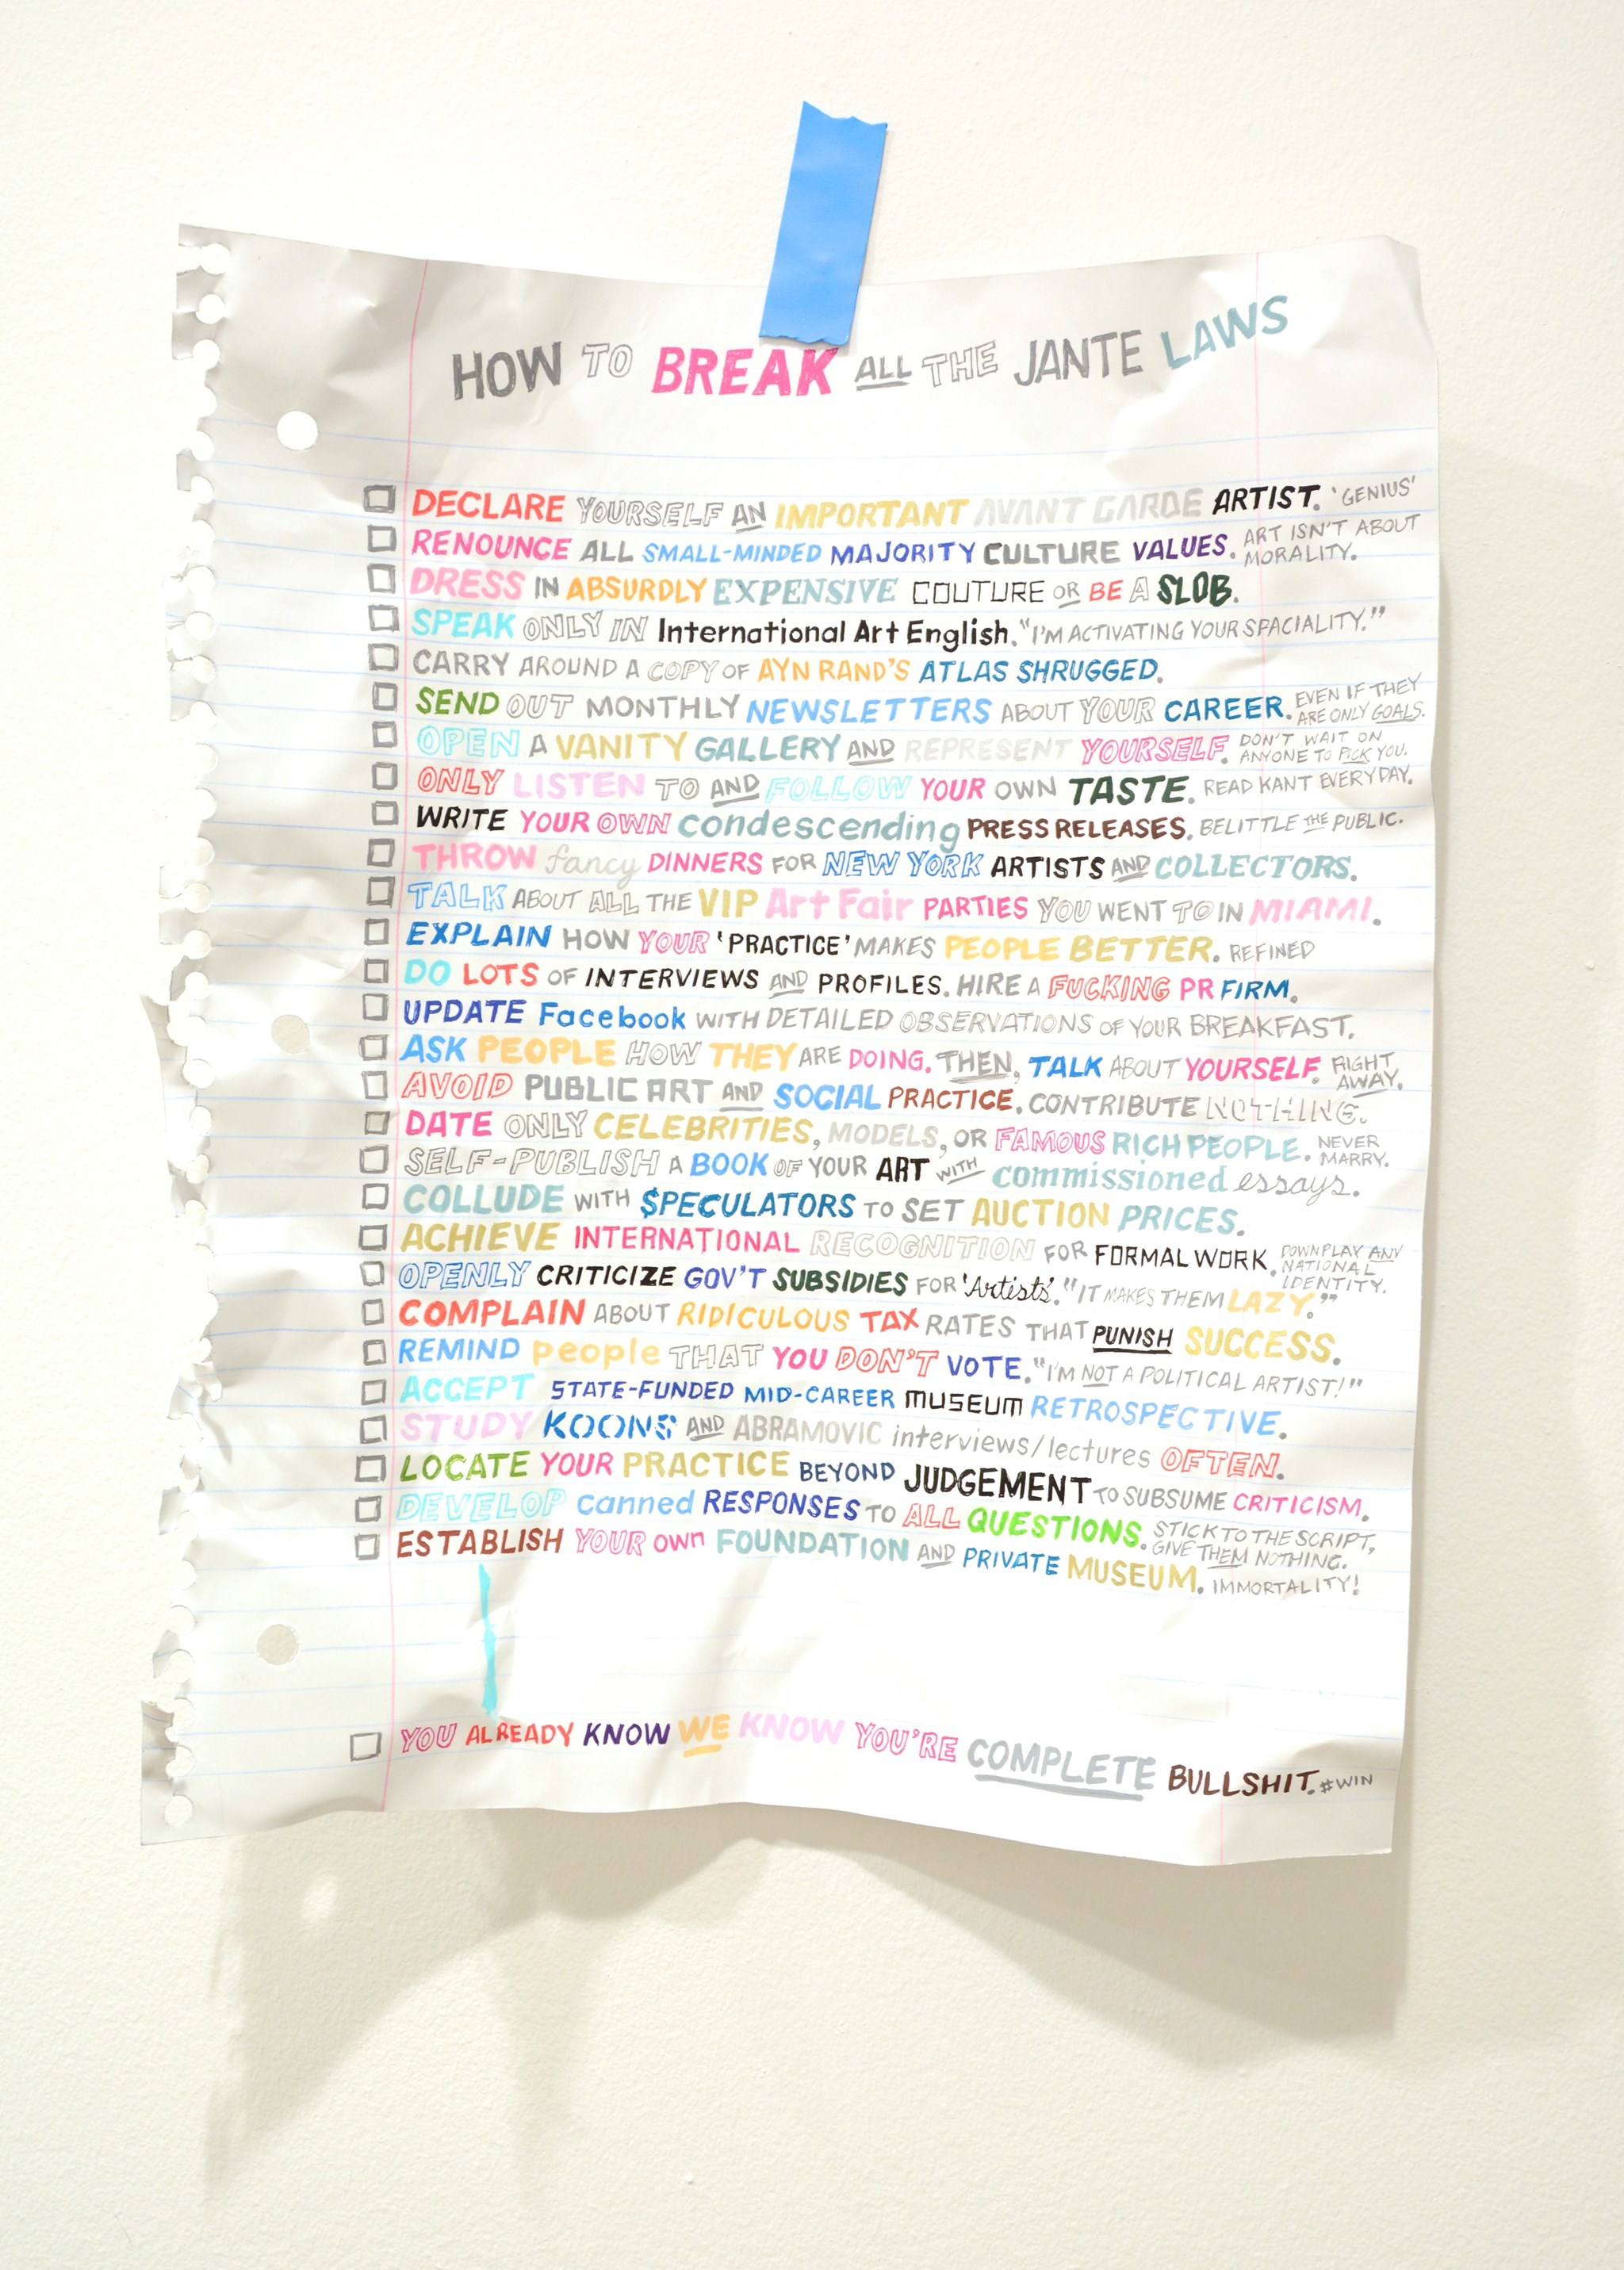 HOW TO BREAK ALL THE JANTE LAWS
DECLARE YOURSELF AN IMPORTANT AVANT GARDE ARTIST. 'GENIUS'
RENOUNCE ALL SMALL-MINDED MAJORITY CULTURE VALUES. ART ISN'T ABOUT
MORALITY.
DRESS IN ABSURDLY EXPENSIVE COUTURE OR BE A SLOB.
SPEAK ONLY IN International Art English. "I'M ACTIVATING YOUR SPACIALITY."
CARRY AROUND A COPY OF AYN RAND'S ATLAS SHRUGGED.
SEND OUT MONTHLY NEWSLETTERS ABOUT YOUR CAREER. EVEN IF THEY
ARE ONLY GOALS.
OPEN A VANITY GALLERY AND REPRESENT YOURSELF. DON'T WAIT ON
ANYONE TO PICK YOU.
ONLY LISTEN TO AND FOLLOW YOUR OWN TASTE. READ KANT EVERYDAY.
WRITE YOUR OWN condescending PRESS RELEASES. BELITTLE THE PUBLIC.
THROW fancy DINNERS FOR NEW YORK ARTISTS AND COLLECTORS.
TALK ABOUT ALL THE VIP Art Fair PARTIES YOU WENT TO IN MIAMI.
EXPLAIN HOW YOUR 'PRACTICE' MAKES PEOPLE BETTER. REFINED
DO LOTS OF INTERVIEWS AND PROFILES. HIRE A FUCKING PR FIRM.
UPDATE Facebook WITH DETAILED OBSERVATIONS OF YOUR BREAKFAST.
ASK PEOPLE HOW THEY ARE DOING. THEN, TALK ABOUT YOURSELF. RIGHT
AWAY.
AVOID PUBLIC ART AND SOCIAL PRACTICE. CONTRIBUTE NOTHING.
DATE ONLY CELEBRITIES, MODELS, OR FAMOUS RICH PEOPLE. NEVER
MARRY.
SELF-PUBLISH A BOOK OF YOUR ART WITH commissioned essays.
COLLUDE WITH $PECULATORS TO SET AUCTION PRICES.
ACHIEVE INTERNATIONAL RECOGNITION FOR FORMAL WORK. DOWNPLAY ANY
NATIONAL
IDENTITY.
OPENLY CRITICIZE GOV'T SUBSIDIES FOR 'Artists'. "IT MAKES THEM LAZY."
COMPLAIN ABOUT RIDICULOUS TAX RATES THAT PUNISH SUCCESS.
REMIND people THAT YOU DON'T VOTE. "I'M NOT A POLITICAL ARTIST!"
ACCEPT STATE-FUNDED MID-CAREER MUSEUM RETROSPECTIVE.
STUDY KOONS AND ABRAMOVIC interviews/lectures OFTEN.
LOCATE YOUR PRACTICE BEYOND JUDGEMENT TO SUBSUME CRITICISM.
DEVELOP canned RESPONSES TO ALL QUESTIONS. STICK TO THE SCRIPT,
GIVE THEM NOTHING.
ESTABLISH YOUR OWN FOUNDATION AND PRIVATE MUSEUM. IMMORTALITY!
YOU ALREADY KNOW WE KNOW YOU'RE COMPLETE BULLSHIT. #WIN